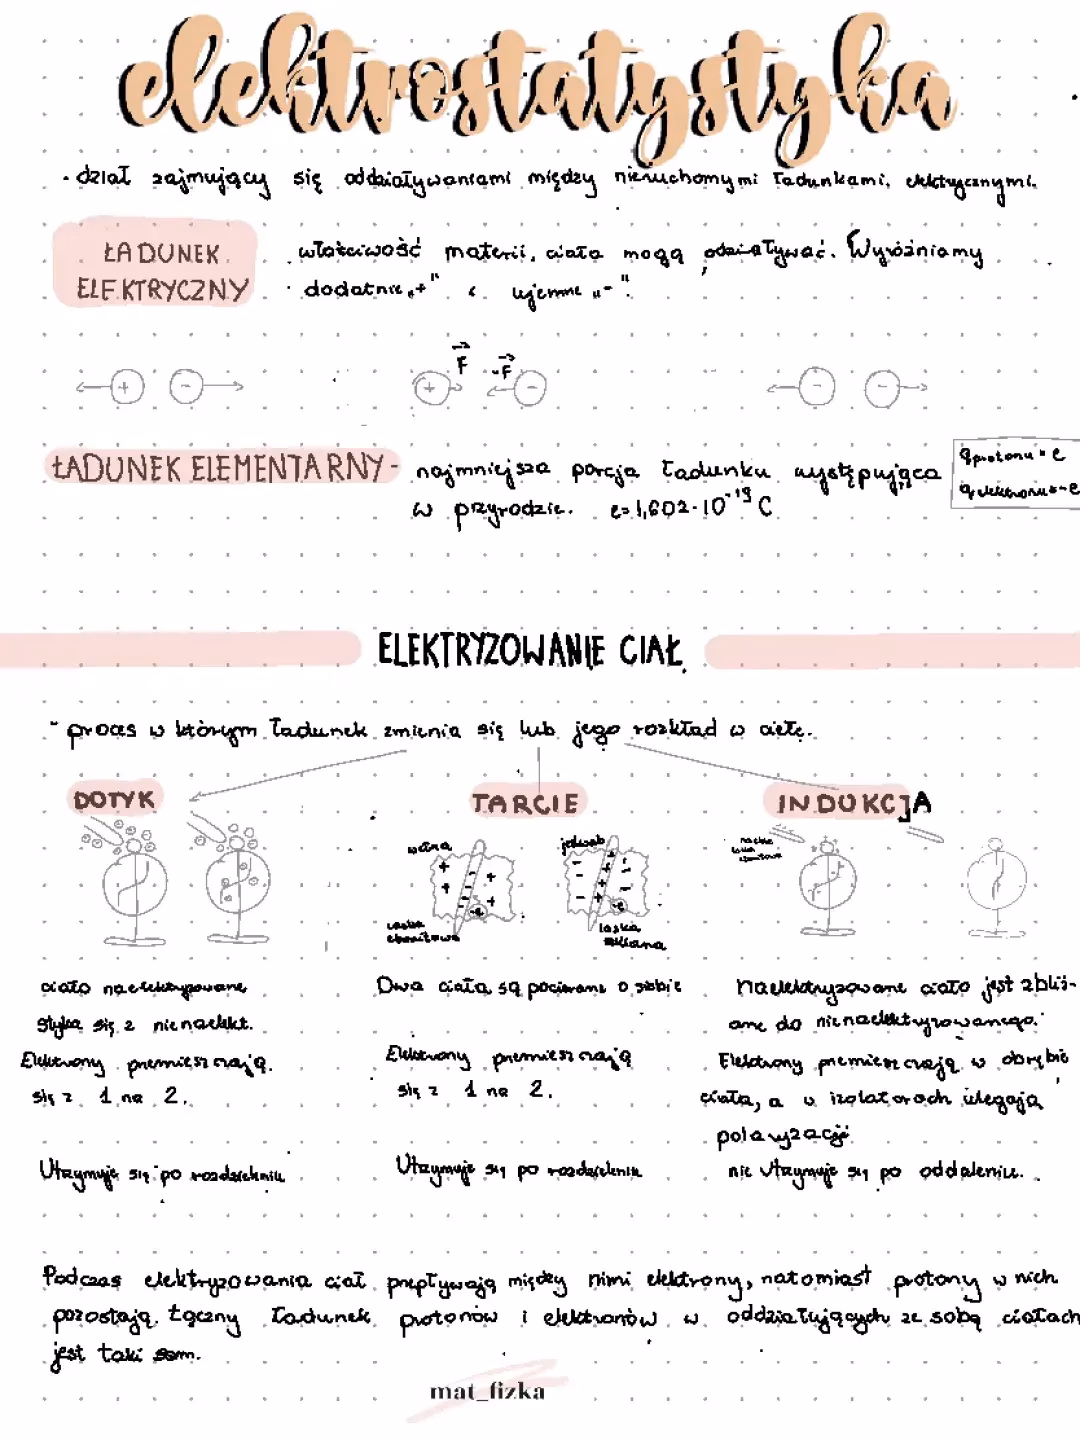 elektrostatystyka
· dział zajmujący się oddziaływaniami między nieruchomymi ładunkami elektrycznymi.
ŁADUNEK ELEKTRYCZNY
właściwość materii, ciała mogą odziaływać. Wyróżniamy
· dodatnie „+" i ujemne „-".
+ -
F -F
+ -
- -
ŁADUNEK ELEMENTARNY - najmniejsza porcja ładunku występująca
w przyrodzie. e=1,602·10⁻¹⁹ C
q protonu = e
q elektronu = -e
ELEKTRYZOWANIE CIAŁ
- proces w którym ładunek zmienia się lub jego rozkład w ciele.
DOTYK
TARCIE
INDUKCJA
wełna
laska ebonitowa
jedwab
laska szklana
ciało naelektryzowane
styka się z nienaelekt.
Elektrony przemieszczają
się z 1 na 2.
Utrzymuje się po rozdzieleniu
Dwa ciała są pocierane o siebie
Elektrony przemieszczają
się z 1 na 2.
Utrzymuje się po rozdzieleniu
Naelektryzowane ciało jest zbliż-
one do nienaelektryzowanego.
Elektrony przemieszczają w obrębie
ciała, a w izolatorach ulegają
polaryzacji
nie utrzymuje się po oddaleniu.
Podczas elektryzowania ciał przepływają między nimi elektrony, natomiast protony w nich
pozostają. Łączny ładunek protonów i elektronów w oddziałujących ze sobą ciałach
jest taki sam.
mat_fizka